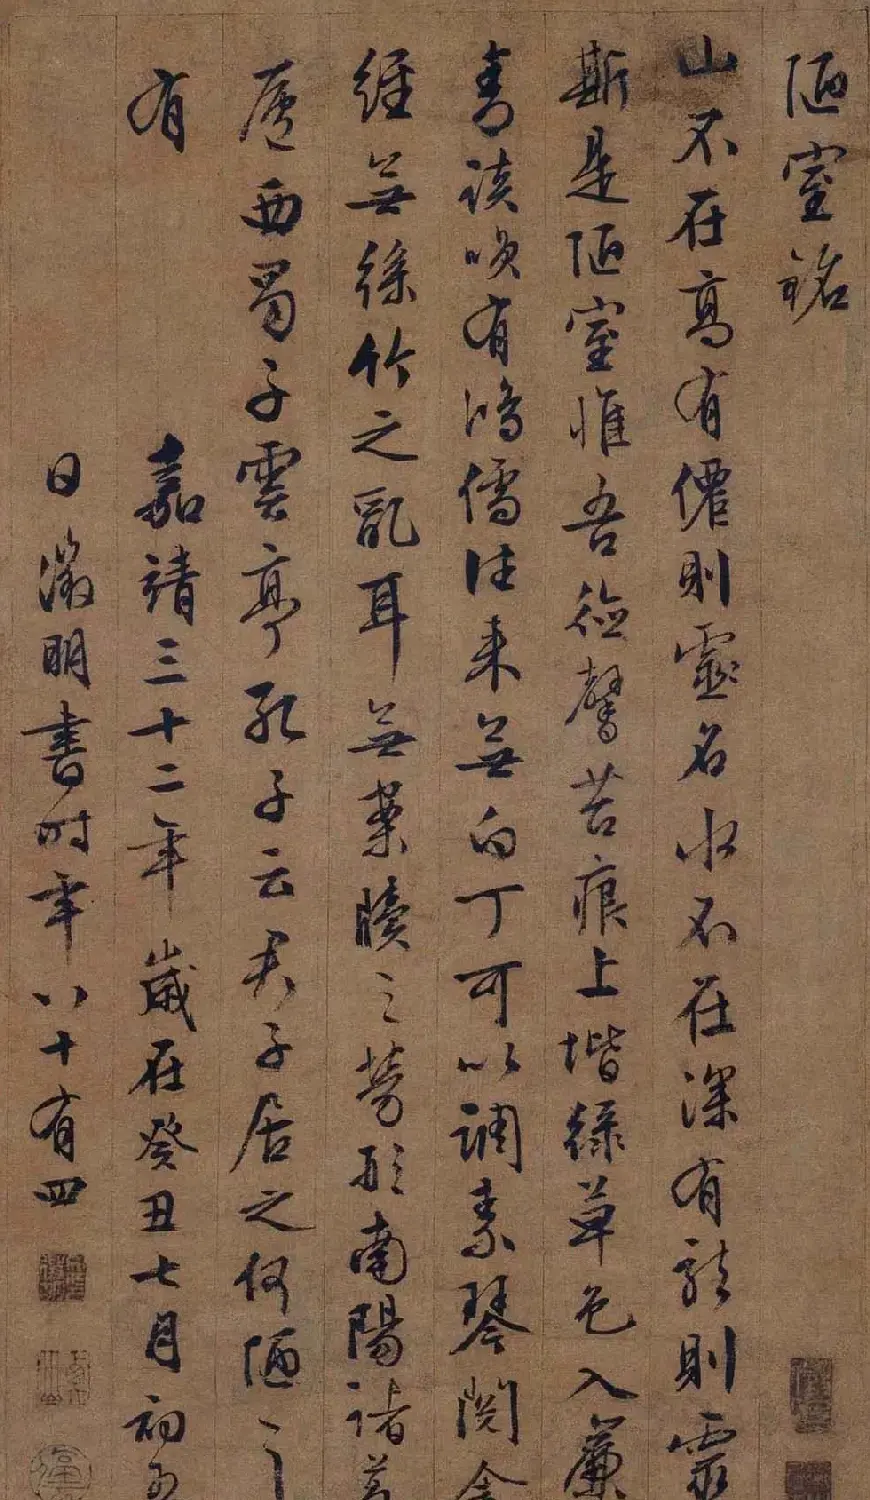 陋室銘
山不在高有僊則靈名水不在深有龍則靈
斯是陋室惟吾德馨苔痕上堦綠草色入簾
青談咲有鴻儒往來無白丁可以調素琴閱金
經無絲竹之亂耳無案牘之勞形南陽諸葛
廬西蜀子雲亭孔子云君子居之何陋之
有 嘉靖三十二年歲在癸丑七月初
日徵明書時年八十有四